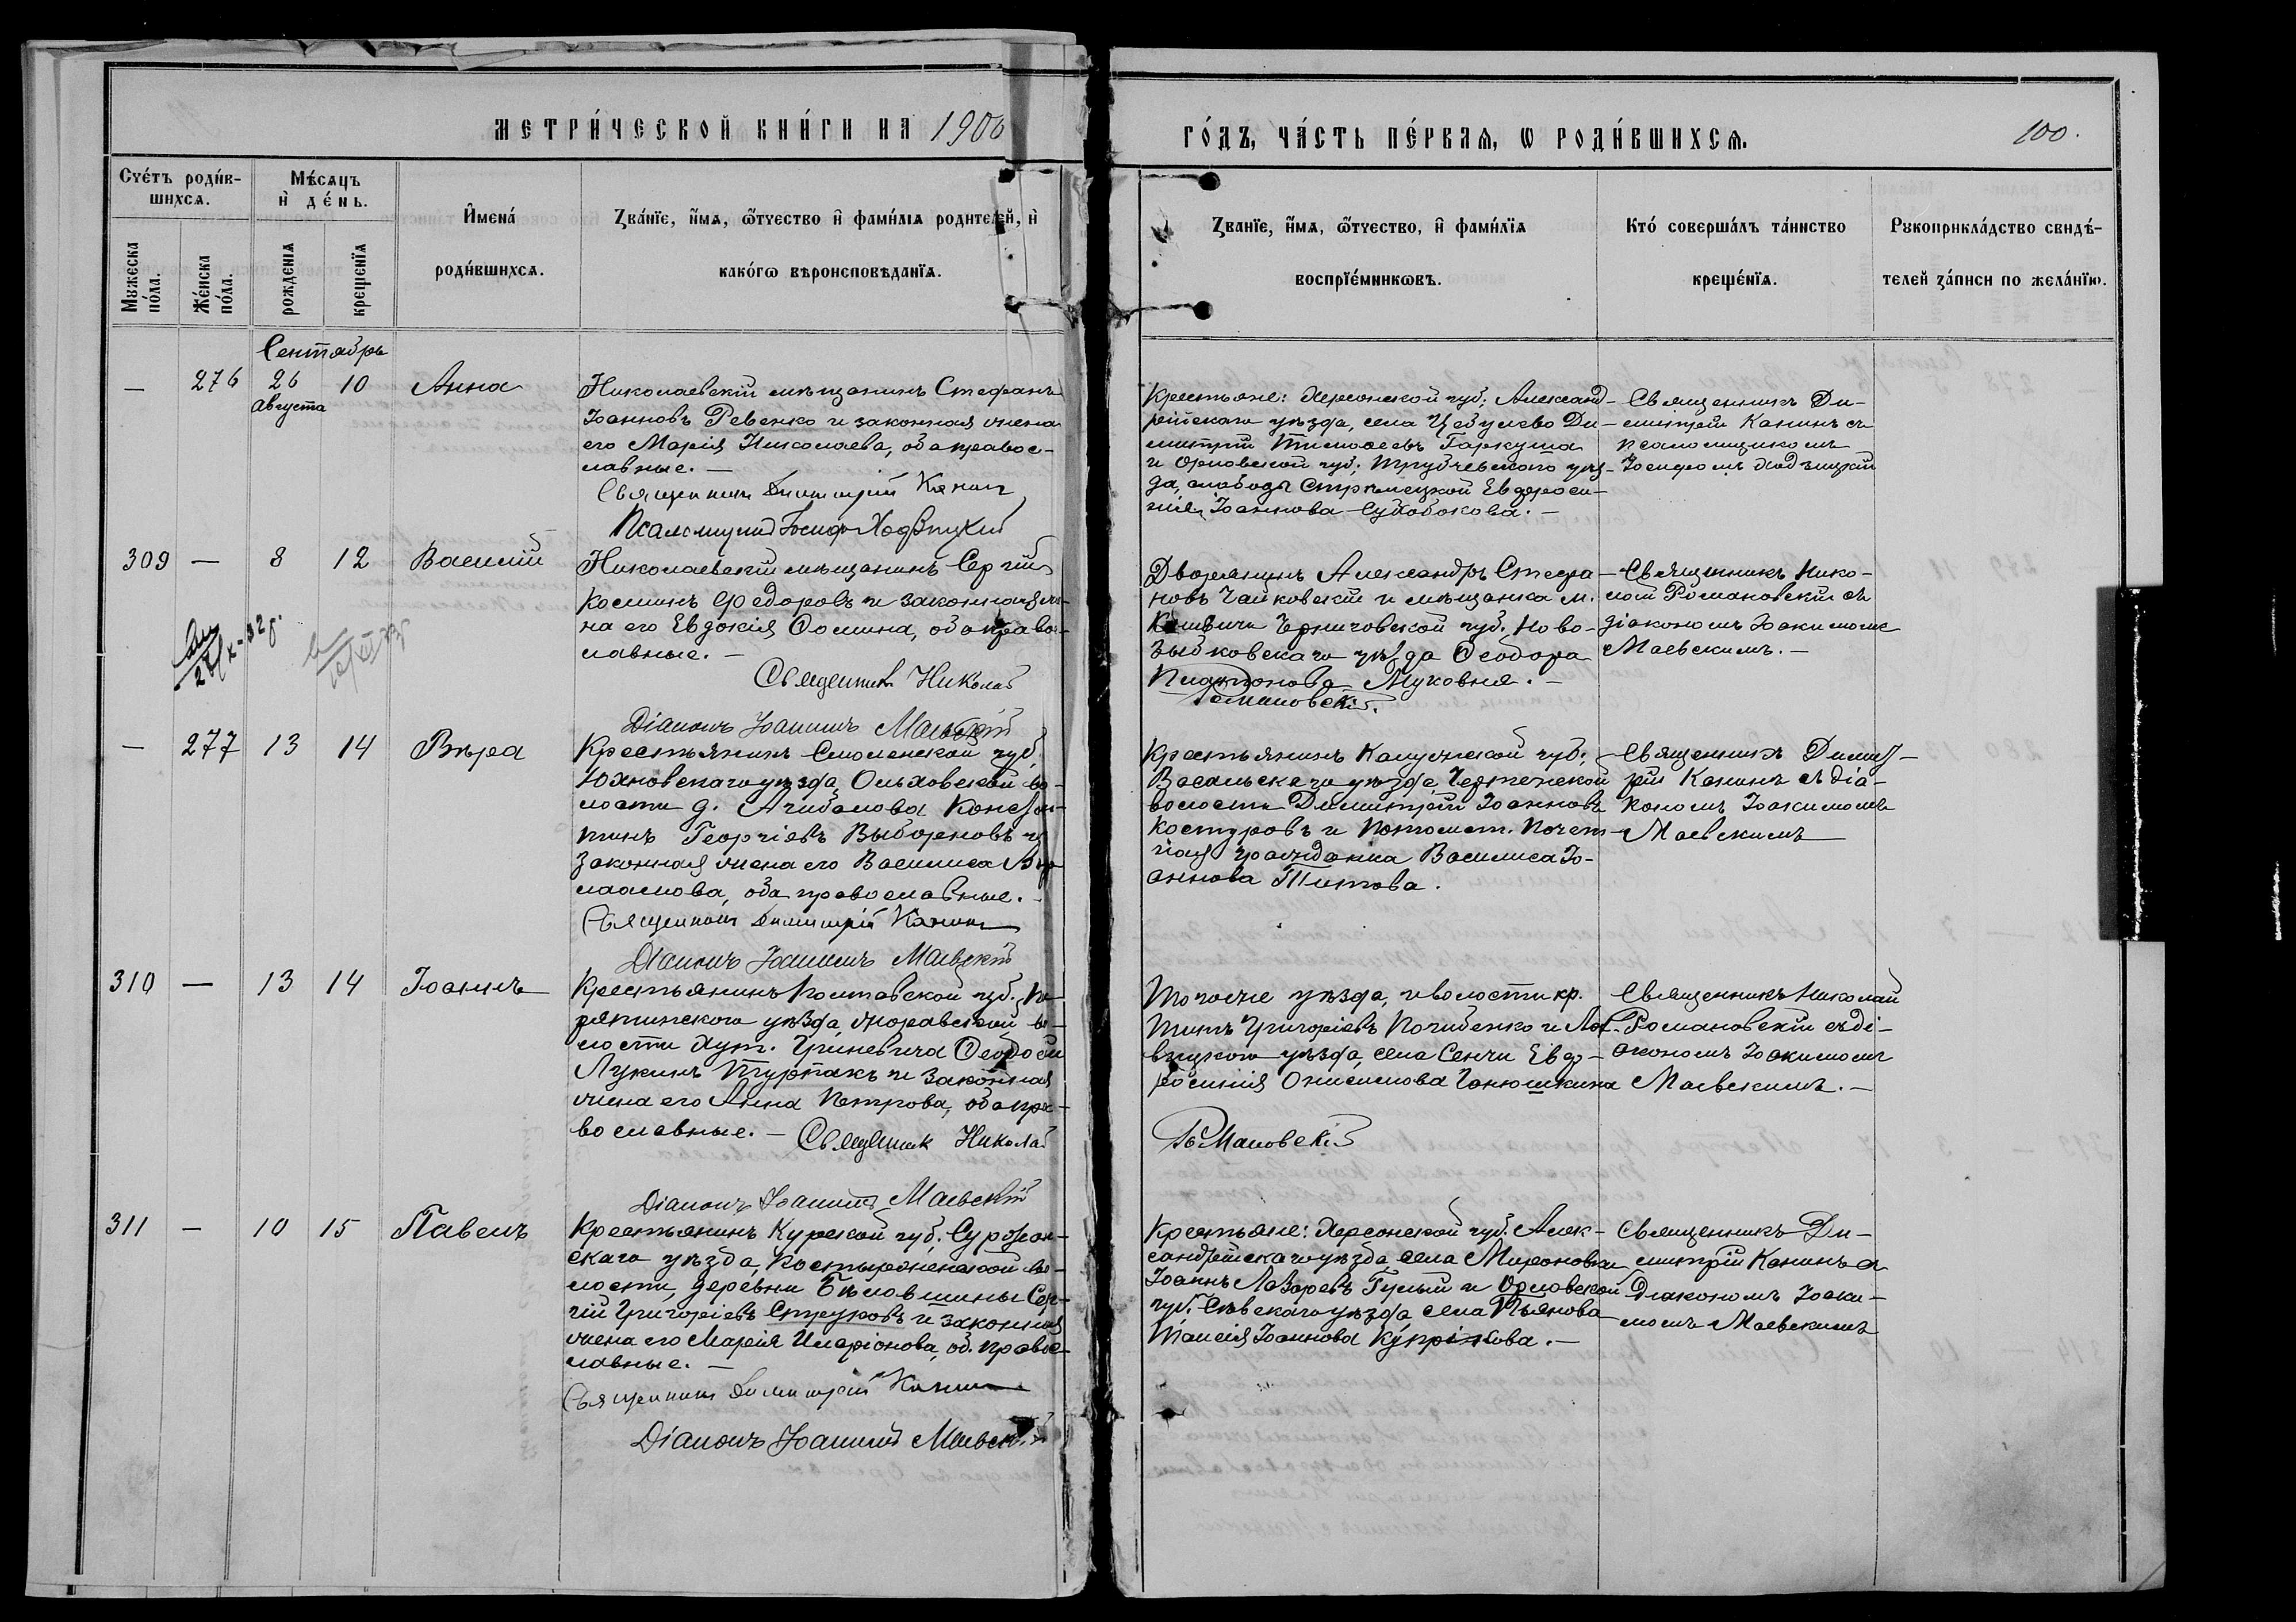 МЕТРИ́ЧЕСКОЙ КНИ́ГИ НА 1906
ГО́ДЪ, ЧА́СТЬ ПЕ́РВАѦ, Ѡ РОДИ́ВШИХСѦ.
100.
Счéтъ роди́в-
шихсѧ.
Мужеска по́ла.
Же́нска по́ла.
Мѣ́сѧцъ
и҆ де́нь.
рожденїѧ
крещенїѧ
И҆мена́
роди́вшихсѧ.
Зва́нїе, и҆́мѧ, ѻ҆́тчество и҆ фами́лїѧ родителей, и҆
како́гѡ вѣроисповѣданїѧ.
Званїе, и҆́мѧ, ѻ҆́тчество, и҆ фами́лїѧ
воспрїе́мникѡвъ.
Кто́ соверша́лъ та́инство
креще́нїѧ.
Рукоприкла́дство свидѣ́-
телей за́писи по жела́нїю.
Сентябрь
— 276 26 августа 10 Анна
Николаевскій мѣщанинъ Стефанъ
Іоанновъ Ревенко и законная жена
его Марія Николаева, оба правос-
лавные. —
Священникъ Димитрій Канинъ
Псаломщикъ Іосифъ Ходзицкій
Крестьяне: Херсонской губ. Александ-
рійскаго уѣзда, села Цыбулево Ди-
митрій Тимоѳеевъ Гаркуша
и Орловской губ. Трубчевскаго уѣз-
да, слободы Стрѣлецкой Евфроси-
нія Іоаннова Сухобокова. —
Священникъ Ди-
митрій Канинъ съ
псаломщикомъ
Іосифомъ Ходзицкій
309 — 8 12 Василій
Николаевскій мѣщанинъ Сергій
Косминъ Ѳедоровъ и законная же-
на его Евдокія Ѳомина, оба право-
славные. —
Священникъ Николай
Романовскій.
Діаконъ Іоакимъ Маевскій
Дворянинъ Александръ Стефа-
новъ Чайковскій и мѣщанка м.
Черниговской губ. Ново-
зыбковскаго уѣзда Ѳеодора
Платонова Муковня. —
Священникъ Нико-
лай Романовскій съ
діакономъ Іоакимомъ
Маевскимъ. —
— 277 13 14 Вѣра
Крестьянинъ Смоленской губ.
Юхновскаго уѣзда, Ольховской во-
лости д. Констан-
тинъ Георгіевъ Выборновъ и
законная жена его Василиса
оба православные. —
Священникъ Димитрій Канинъ
Діаконъ Іоакимъ Маевскій
Крестьянинъ Калужской губ.
уѣзда,
волости Димитрій Іоанновъ
Костуровъ и Потомст. Почет-
ная гражданка Василиса Іо-
аннова Титова.
Священникъ Димит-
рій Канинъ съ діа-
кономъ Іоакимомъ
Маевскимъ
310 — 13 14 Іоаннъ
Крестьянинъ Полтавской губ. Пи-
рятинскаго уѣзда, во-
лости хут. Гриневича Ѳеодосій
Лукинъ Турпакъ и законная
жена его Анна Петрова, оба пра-
вославные. — Священникъ Николай
Романовскій
Діаконъ Іоакимъ Маевскій
Того же уѣзда, и волости кр.
Титъ Григоріевъ Почибенко и Лох-
вицкаго уѣзда, села Сенчи Евф-
росинія Онисимова Гонюшкина
Священникъ Николай
Романовскій съ ді-
акономъ Іоакимомъ
Маевскимъ. —
311 — 10 15 Павелъ
Крестьянинъ Курской губ. Суджан-
скаго уѣзда, во-
лости, деревни Бѣловшины Сер-
гій Григоріевъ Струковъ и законная
жена его Марія Иларіонова, об. право-
славные. —
Священникъ Димитрій Канинъ
Діаконъ Іоакимъ Маевскій
Крестьяне: Херсонской губ. Алек-
сандрійскаго уѣзда, села Мироновки
Іоаннъ Лазаревъ Гулый и Орловской
губ. Сѣвскаго уѣзда села Пьянова
Таисія Іоаннова Купріякова. —
Священникъ Ди-
митрій Канинъ съ
Діакономъ Іоаки-
момъ Маевскимъ